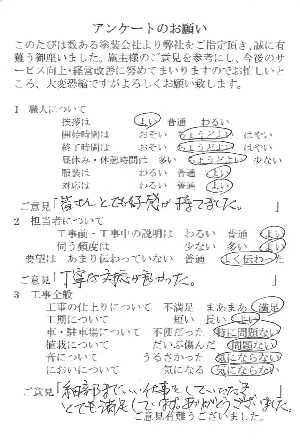 アンケートのお願い
このたびは数ある塗装会社より弊社をご指定頂き、誠に有
難う御座いました。施主様のご意見を参考にし、今後のサ
ービス向上・経営改善に努めてまいりますのでお忙しいと
ころ、大変恐縮ですがよろしくお願い致します。
1 職人について
挨拶は よい 普通 わるい
開始時間は おそい ちょうどよい はやい
終了時間は おそい ちょうどよい はやい
昼休み・休憩時間は 多い ちょうどよい 少ない
服装は わるい 普通 よい
対応は わるい 普通 よい
ご意見「皆さんとても好感が持てました。」
2 担当者について
工事前・工事中の説明は わるい 普通 よい
伺う頻度は 少ない 多い よい
要望は あまり伝わっていない 普通 よく伝わった
ご意見「丁寧な対応が良かった。」
3 工事全般
工事の仕上りについて 不満足 まあまあ 満足
工期について 短い 長い よい
車・駐車場について 不便だった 特に問題ない
植栽について だいぶ傷んだ 問題ない
音について うるさかった 気にならない
においについて 気になる 気にならない
ご意見「細部まで、いい仕事をしていただき
とても満足しています。ありがとうございました。
ご意見有難うございました。